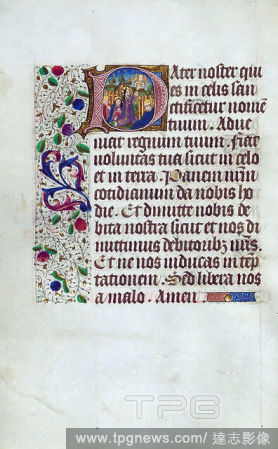 Pater noster qui
es in celis san
ctificetur nomē
tuum. Adue
niat regnum tuum. fiat
voluntas tua sicut in celo
et in terra. Panem nr̄m
cotidianum da nobis ho
die. Et dimitte nobis de
bita nostra sicut et nos di
mittimus debitoribꝫ nr̄is.
Et ne nos inducas in tēp
tationem. Sed libera nos
a malo. Amen
TPG
www.tpgnews.com/達志影像